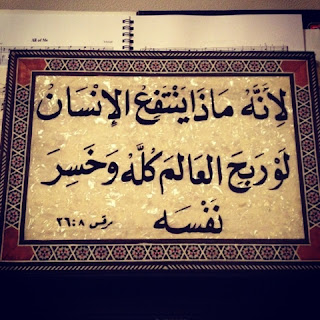 All of Me
لأَنَّهُ مَاذَا يَنْتَفِعُ الإِنْسَانُ
لَوْ رَبِحَ العَالَمَ كُلَّهُ وَخَسِرَ
نَفْسَه
مرقس ٨:٢٦